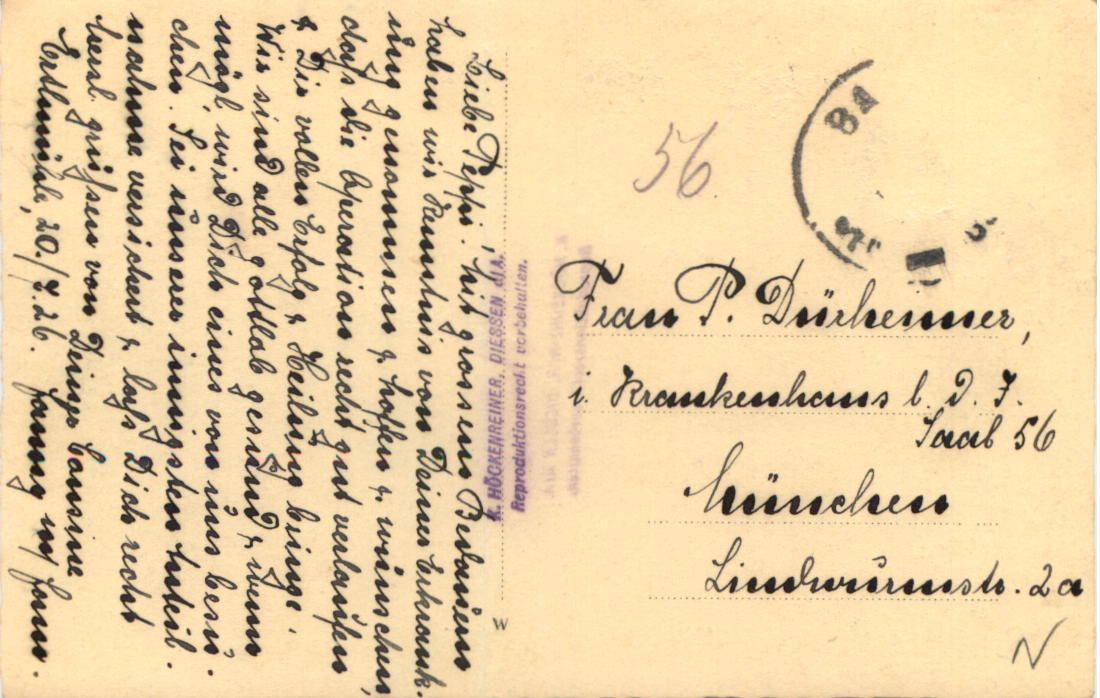 Liebe Peppi! Mit grossem Bedauern
haben wir Kenntnis von Deiner Erkrank-
ung genommen & hoffen & wünschen,
dass die Operation recht gut verlaufen
& Dir vollen Erfolg & Heilung bringe.
Wir sind alle gottlob gesund & wenn
mögl. wird Dich eines von uns besu-
chen. Sei unserer innigsten Anteil-
nahme versichert & lass Dich recht
herzl. grüssen von Deiner Cousine
20./7.26. Fanny u/ Fam.
K. HÖCKENREINER, DIESSEN a/A.
Reproduktionsrecht vorbehalten.
W
56.
Frau P. Dürheimer,
i. Krankenhaus l. d. I.
Saal 56
München
Lindwurmstr. 2a
N